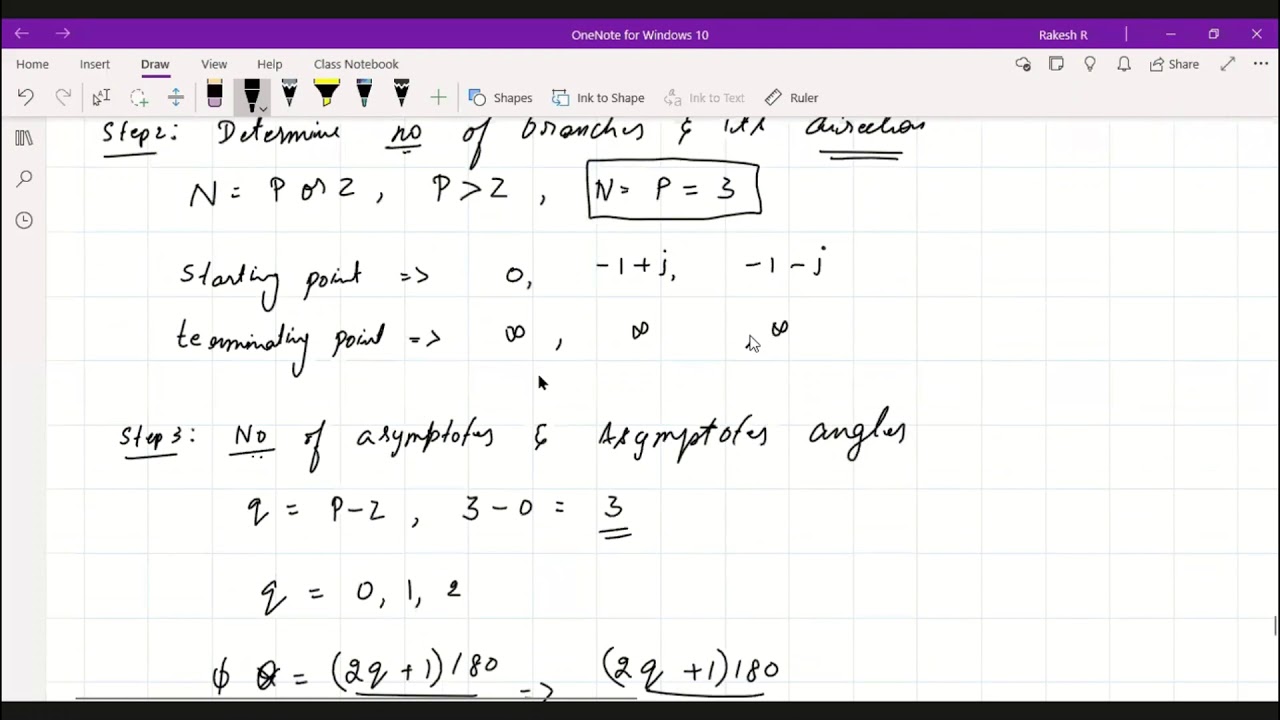 OneNote for Windows 10
Rakesh R
Home Insert Draw View Help Class Notebook Share
Shapes Ink to Shape Ink to Text Ruler
Step2: Determine no of branches & its direction
N = P or Z, P > Z, N = P = 3
Starting point => 0, -1 + j, -1 - j
terminating point => ∞, ∞, ∞
Step 3: No of asymptotes & Asymptotes angles
q = P - Z, 3 - 0 = 3
q = 0, 1, 2
ϕ = (2q + 1)180 => (2q + 1)180